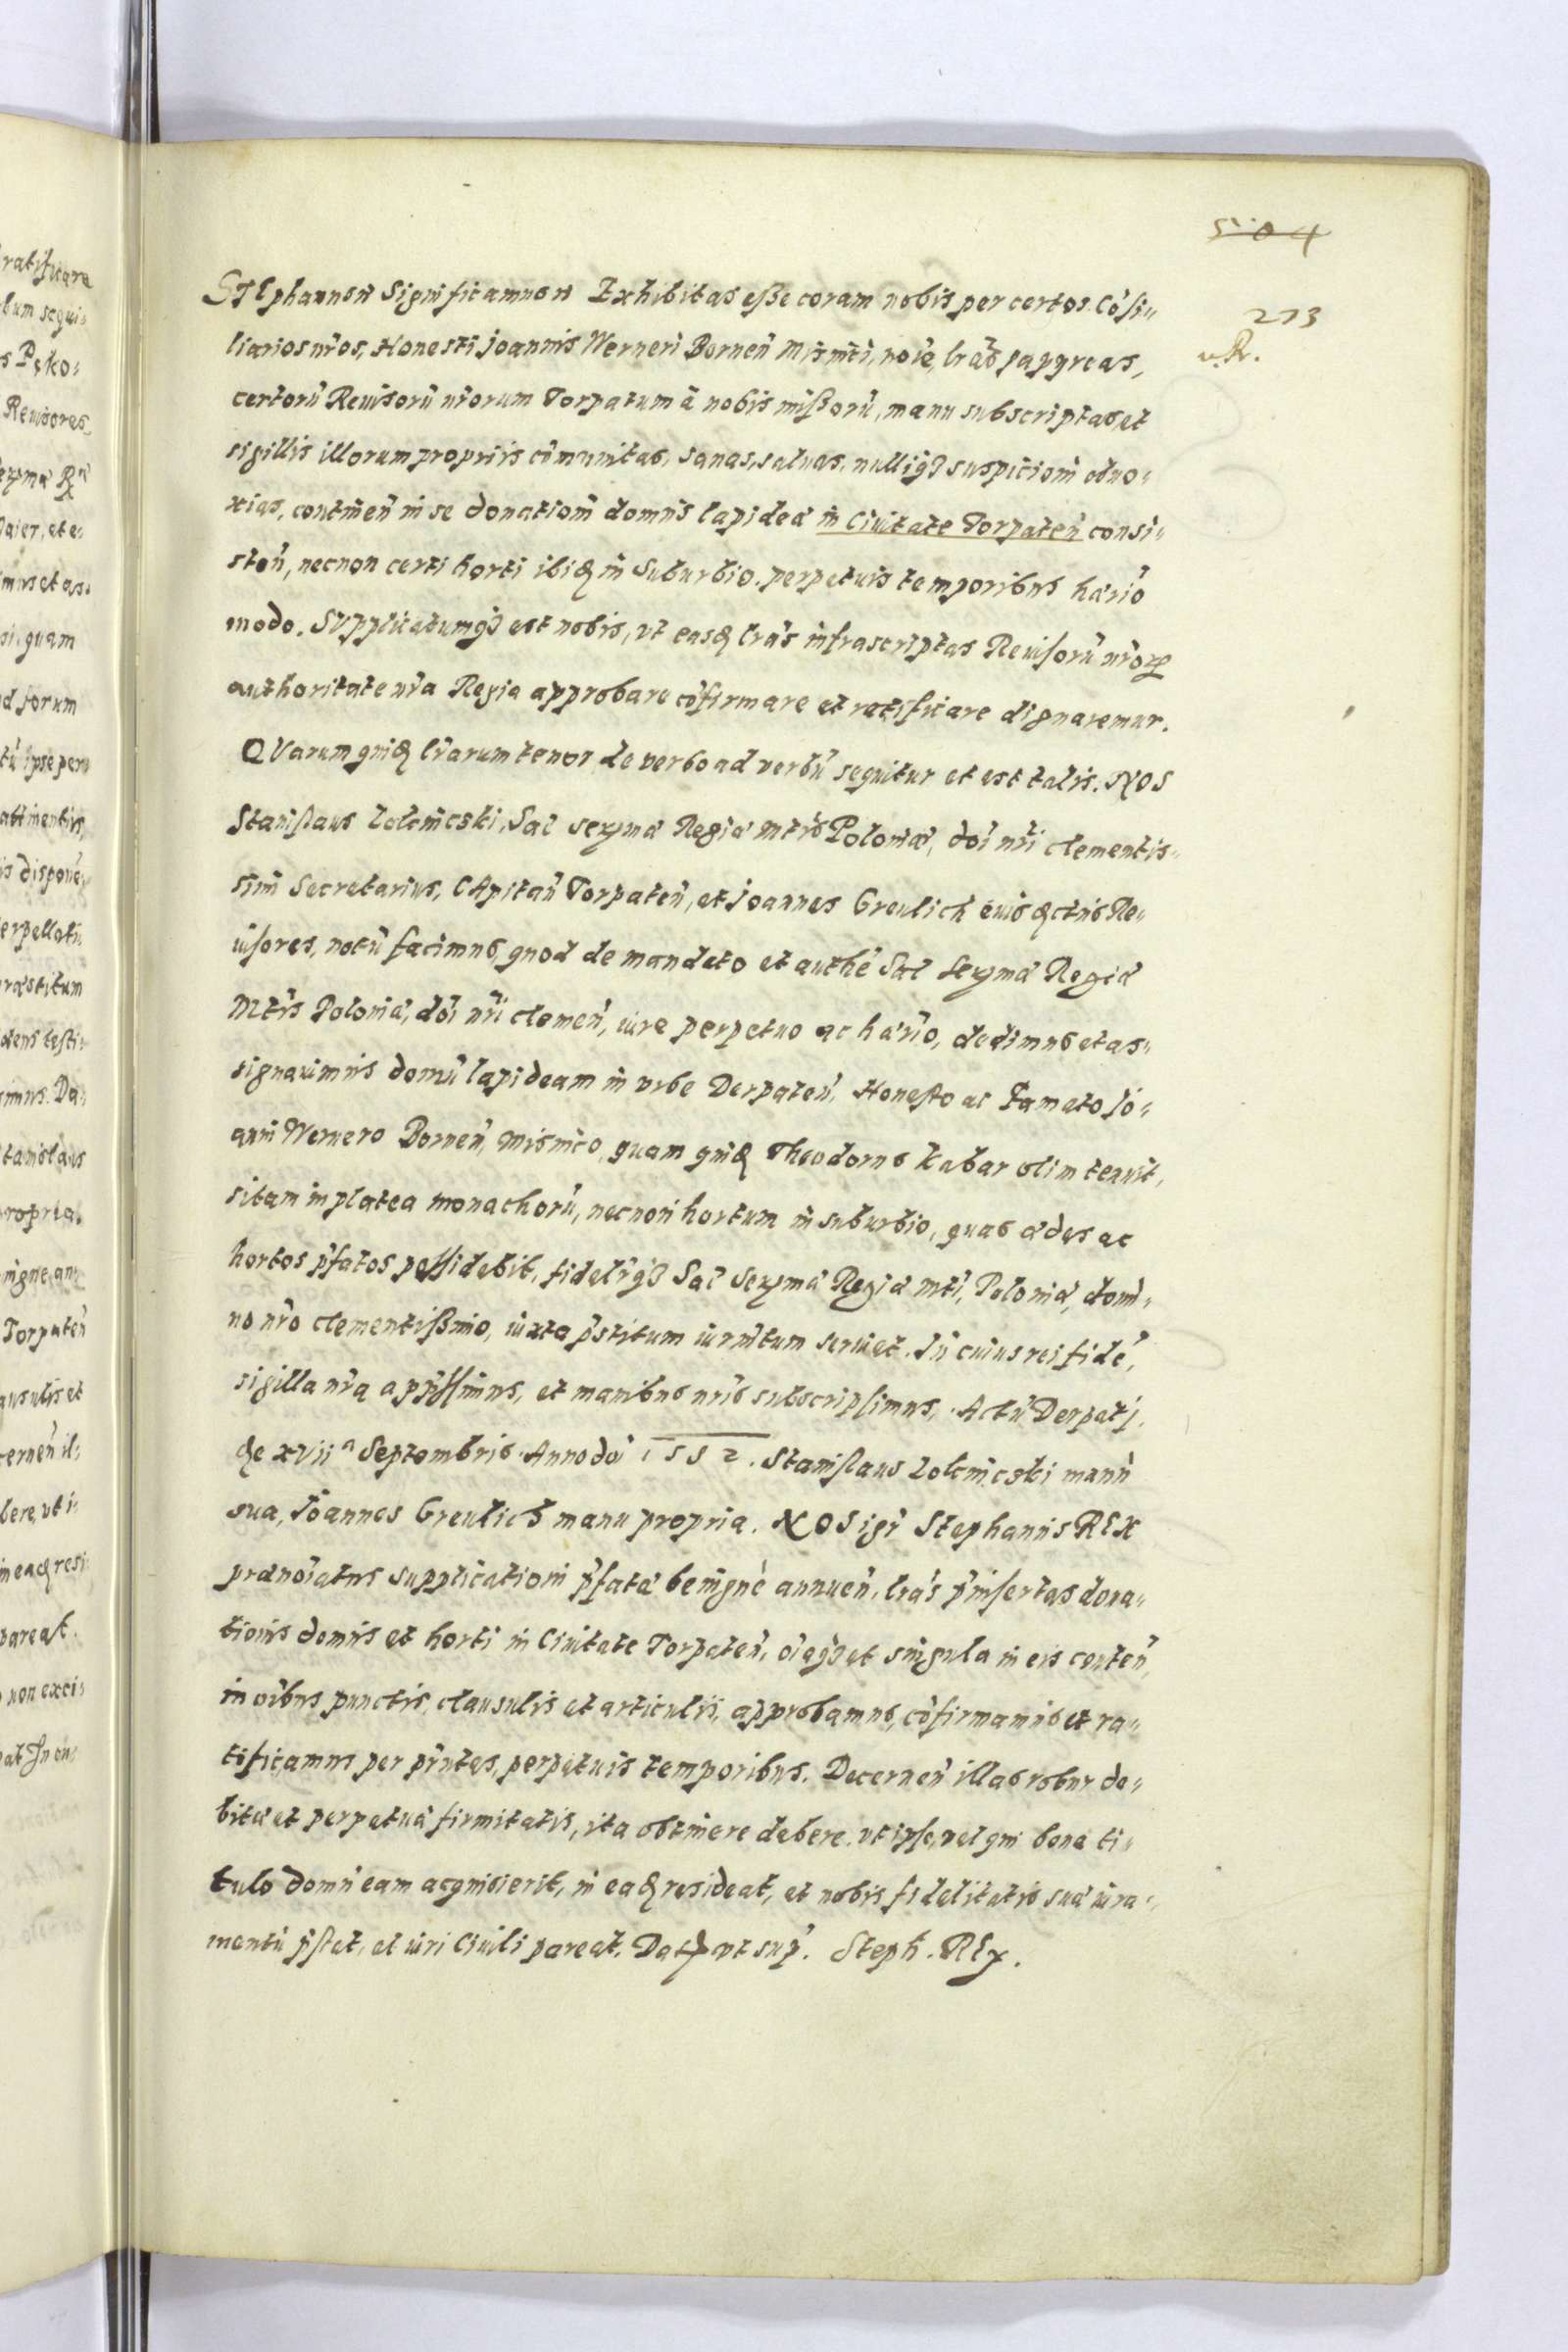 5 0 4
STEphannos Significamnos Exhibitas eße coram nobis per certos Cósi„
273
liarios nr̃os, Honesti Joannis Werneri Bornen̄ Misnici, noı̃e, lr̃as papyreas,
v. R.
certorū Reuisorū nr̃orum Torpatum à nobis mißorū, manu subscriptas, et
sigillis illorum propriis cōmunitas, sanas, saluas, nulliq3 suspicioni obno„
xias, continen̄ in se donationē domus lapideæ in Ciuitate Torpaten̄ consi„
sten̄, necnon certi horti ibid in suburbio. perpetuis temporibus hær̃io
modo. Supplicatumq3 est nobis, vt easd lr̃as infrascriptas Reuisorū nr̃oꝝ
authoritate nr̃a Regia approbare cōfirmare et ratificare dignaremur.
QVarum quid lr̃arum tenor de verbo ad verbū sequitur et est talis. NOS
Stanislaus Zolcinieski, Sac serꝫmæ Regiæ Mt̃is Poloniæ, dn̄i nr̃i clementis„
simi Secretarius, CApitan̄ Torpaten̄, et Joannes Greulich eius Re„
uisores, notū facimus, quod de mandato et authē Sac Serꝫmæ Regiæ
Mt̃is Poloniæ, dn̄i nr̃i clemen̄, iure perpetuo ac hær̃io, dedimus et as„
signauimus domū lapideam in vrbe Derpaten̄, Honesto ac Famato Jo„
anni Wernero Bornen̄, Misnico, quam quid Theodorus Kabar olim tenuit,
sitam in platea monachorū, necnon hortum in suburbio, quas ædes ac
hortos p̄fatos possidebit, fideliq3 Sac Serꝫmæ Regiæ Mt̃i, Poloniæ, domi„
no nr̃o clementißimo, iuxta p̄stitum iurm̄tum seruiet. In cuius rei fidē,
sigilla nr̃a app̄ssimus, et manibus nr̃is subscripsimus, Actū Derpati,
die xviia Septembris Anno dn̄i 1582. Stanislaus Zolcinieski manu
sua, Joannes Greulich manu propria. NOS igr̃ Stephanus REX
prænoı̃atus supplicationi p̄fatæ benignè annuen̄, lr̃as p̄insertas dona„
tionis domus et horti in Ciuitate Torpaten̄, oı̃aq3 et singula in eis conten̄,
in oı̃bus punctis, clausulis et articulis, approbamus, cōfirmamus et ra„
tificamus per p̄ntes, perpetuis temporibus. Decernen̄ illas robur de„
bitæ et perpetuæ firmitatis, ita obtinere debere, vt ipse, vel qui bona ti„
tulo domū eam acquisierit, in ead resideat, et nobis fidelitatis suæ iura„
mentū p̄stet, et iuri Ciuili pareat. Dat vt sup̄. Steph. REx.